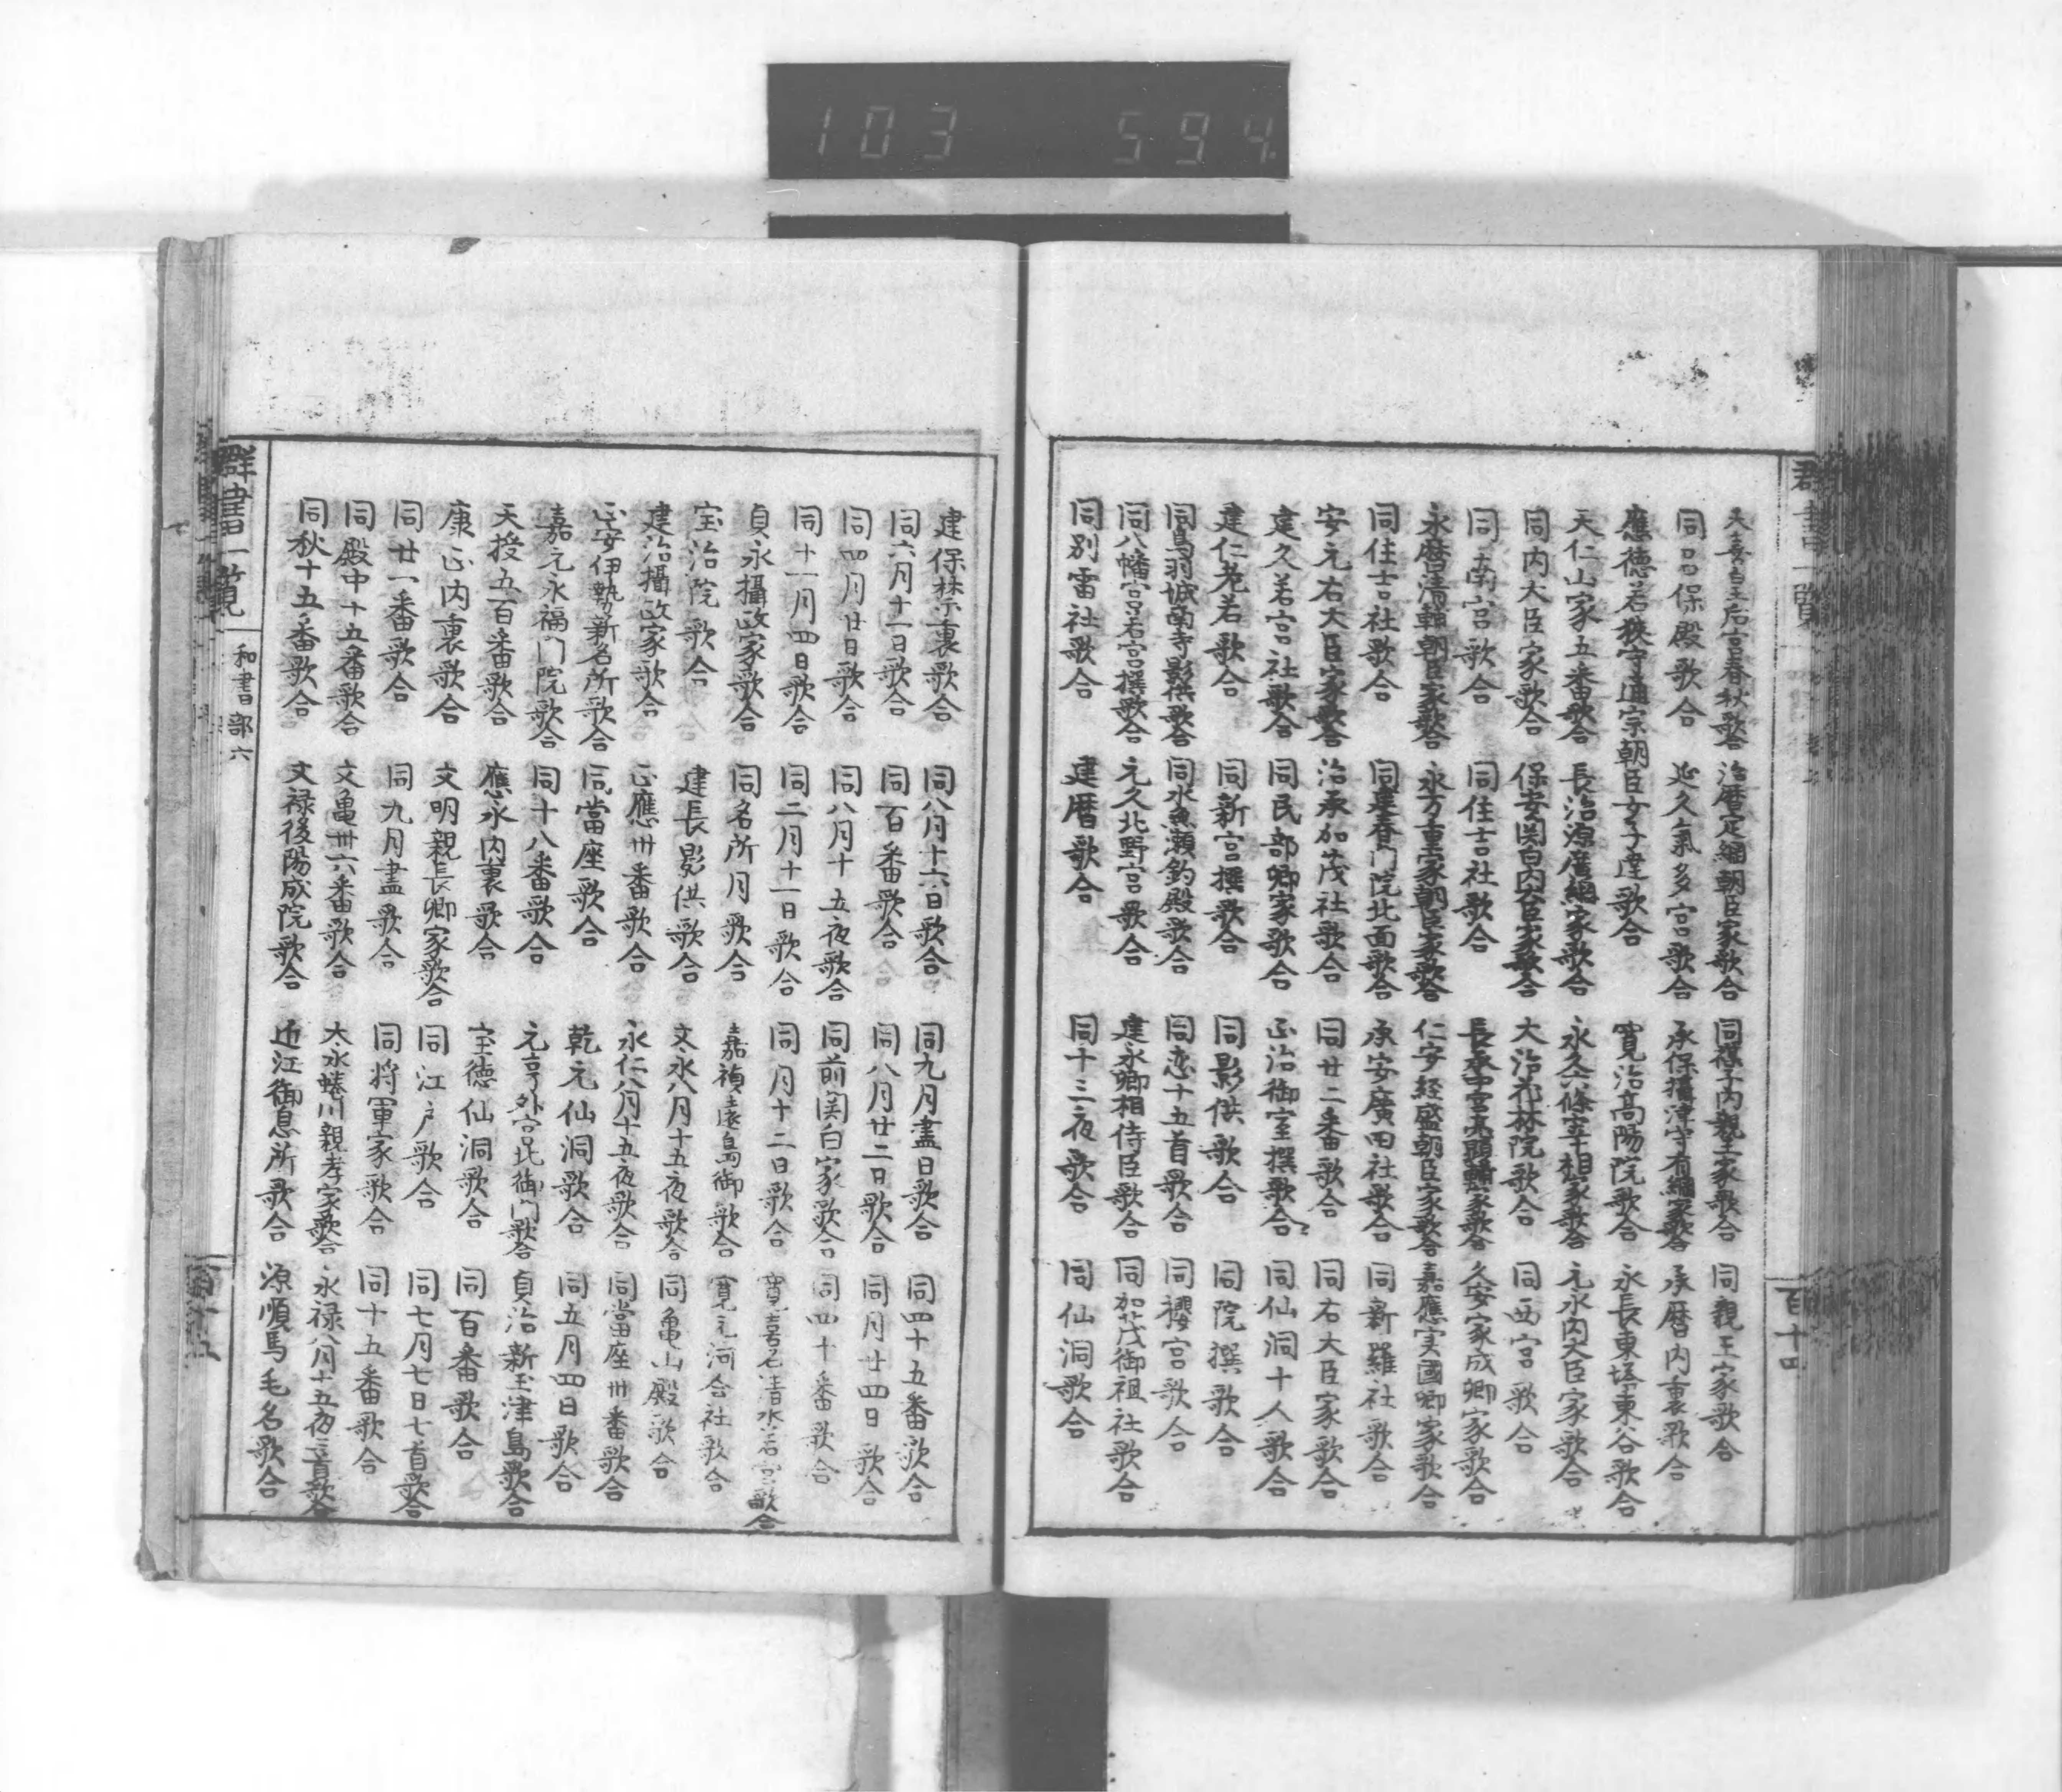 103 594
群書一覧
百十四
天喜皇后宮春秋歌合 治暦定綱朝臣家歌合 同禖子内親王家歌合 同親王家歌合
同 保殿歌合 延久氣多宮歌合 承保攝津守有綱家歌合 承暦内裏歌合
應徳若狹守通宗朝臣女子達歌合 寛治高陽院歌合 永長東塔東谷歌合
天仁山家五番歌合 長治源廣綱家歌合 永久六條宰相家歌合 元永内大臣家歌合
同内大臣家歌合 保安関白内大臣家歌合 大治花林院歌合 同西宮歌合
同南宮歌合 同住吉社歌合 長承中宮亮顕輔家歌合 久安家成卿家歌合
永暦清輔朝臣家歌合 永万重家朝臣家歌合 仁安経盛朝臣家歌合 嘉應実國卿家歌合
同住吉社歌合 同建春門院北面歌合 承安廣田社歌合 同新羅社歌合
安元右大臣家歌合 治承加茂社歌合 同廿二番歌合 同右大臣家歌合
建久若宮社歌合 同民部卿家歌合 正治御室撰歌合 同仙洞十人歌合
建仁老若歌合 同新宮撰歌合 同影供歌合 同院撰歌合
同鳥羽城南寺影供歌合 同水魚瀬釣殿歌合 同恋十五首歌合 同櫻宮歌合
同八幡宮若宮撰歌合 元久北野宮歌合 建永卿相侍臣歌合 同加茂御祖社歌合
同別雷社歌合 建暦歌合 同十三夜歌合 同仙洞歌合
建保禁裏歌合 同八月十六日歌合 同九月盡日歌合 同四十五番歌合
同六月十一日歌合 同百番歌合 同八月廿二日歌合 同月廿四日歌合
同四月廿日歌合 同八月十五夜歌合 同前関白家歌合 同四十番歌合
同十一月四日歌合 同二月十一日歌合 同月十二日歌合 寛喜石清水若宮歌合
貞永攝政家歌合 同名所月歌合 嘉禎遠島御歌合 寛元河合社歌合
宝治院歌合 建長影供歌合 文永八月十五夜歌合 同亀山殿歌合
建治攝政家歌合 正應卅番歌合 永仁八月十五夜歌合 同當座卅番歌合
正安伊勢新名所歌合 同當座歌合 乾元仙洞歌合 同五月四日歌合
嘉元永福門院歌合 同十八番歌合 元亨外宮北御門歌合 貞治新玉津島歌合
天授五百番歌合 應永内裏歌合 宝徳仙洞歌合 同百番歌合
康正内裏歌合 文明親長卿家歌合 同江戸歌合 同七月七日七首歌合
同廿一番歌合 同九月盡歌合 同将軍家歌合 同十五番歌合
同殿中十五番歌合 文亀卅六番歌合 大永蜷川親孝家歌合 永禄八月十五夜三首歌合
同秋十五番歌合 文禄後陽成院歌合 近江御息所歌合 源順馬毛名歌合
群書一覧 和書部六 百十五